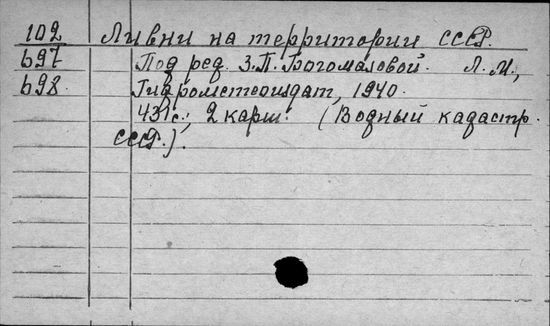 102 Ливни на территории СССР.
697 Под ред. З.П. Богомазовой. Л.М.,
698 Гидрометеоиздат, 1940.
431с.; 2 карт. (Водный кадастр
СССР).